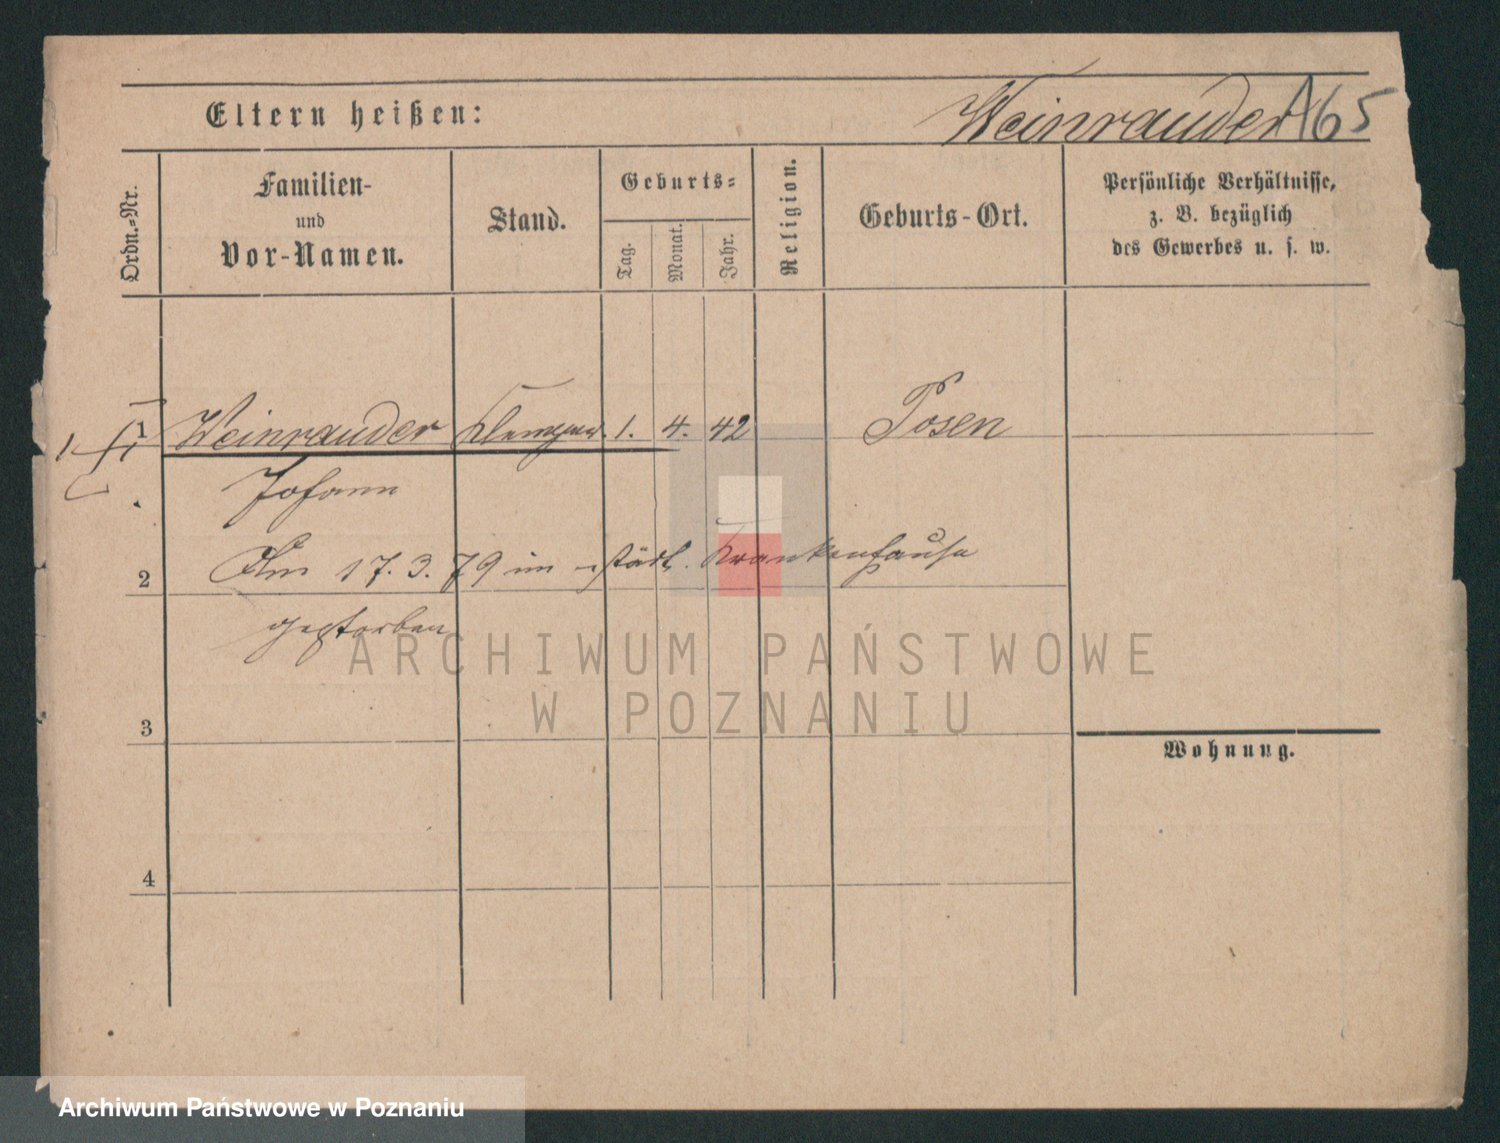 Eltern heißen:
Weinrauder 165
Ordn.-Nr.
Familien-
und
Vor-Namen.
Stand.
Geburts-
Tag.
Monat.
Jahr.
Religion.
Geburts-Ort.
Persönliche Verhältnisse,
z. B. bezüglich
des Gewerbes u. s. w.
1 Weinrauder Klempner. 1. 4. 42 Posen
Johann
2 Am 17. 3. 79 im städt. Krankenhause
gestorben
3
Wohnung.
4
ARCHIWUM PAŃSTWOWE
W POZNANIU
Archiwum Państwowe w Poznaniu